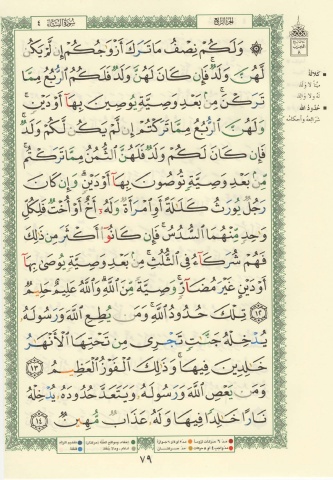 الجزء الرابع
سورة النساء ٤
۞ وَلَكُمْ نِصْفُ مَا تَرَكَ أَزْوَٰجُكُمْ إِن لَّمْ يَكُن
لَّهُنَّ وَلَدٌ ۚ فَإِن كَانَ لَهُنَّ وَلَدٌ فَلَكُمُ ٱلرُّبُعُ مِمَّا
تَرَكْنَ ۚ مِنۢ بَعْدِ وَصِيَّةٍ يُوصِينَ بِهَآ أَوْ دَيْنٍ ۚ
وَلَهُنَّ ٱلرُّبُعُ مِمَّا تَرَكْتُمْ إِن لَّمْ يَكُن لَّكُمْ وَلَدٌ ۚ
فَإِن كَانَ لَكُمْ وَلَدٌ فَلَهُنَّ ٱلثُّمُنُ مِمَّا تَرَكْتُم ۚ
مِّنۢ بَعْدِ وَصِيَّةٍ تُوصُونَ بِهَآ أَوْ دَيْنٍ ۗ وَإِن كَانَ
رَجُلٌ يُورَثُ كَلَٰلَةً أَوِ ٱمْرَأَةٌ وَلَهُۥٓ أَخٌ أَوْ أُخْتٌ فَلِكُلِّ
وَٰحِدٍ مِّنْهُمَا ٱلسُّدُسُ ۚ فَإِن كَانُوٓا۟ أَكْثَرَ مِن ذَٰلِكَ
فَهُمْ شُرَكَآءُ فِى ٱلثُّلُثِ ۚ مِنۢ بَعْدِ وَصِيَّةٍ يُوصَىٰ بِهَآ
أَوْ دَيْنٍ غَيْرَ مُضَآرٍّ ۚ وَصِيَّةً مِّنَ ٱللَّهِ ۗ وَٱللَّهُ عَلِيمٌ حَلِيمٌ
١٢ تِلْكَ حُدُودُ ٱللَّهِ ۚ وَمَن يُطِعِ ٱللَّهَ وَرَسُولَهُۥ
يُدْخِلْهُ جَنَّٰتٍ تَجْرِى مِن تَحْتِهَا ٱلْأَنْهَٰرُ
خَٰلِدِينَ فِيهَا ۚ وَذَٰلِكَ ٱلْفَوْزُ ٱلْعَظِيمُ ١٣
وَمَن يَعْصِ ٱللَّهَ وَرَسُولَهُۥ وَيَتَعَدَّ حُدُودَهُۥ يُدْخِلْهُ
نَارًا خَٰلِدًا فِيهَا وَلَهُۥ عَذَابٌ مُّهِينٌ ١٤
٧٩
كلالة
ميتا لا ولد
له ولا والد
حدود الله
شرائعه وأحكامه